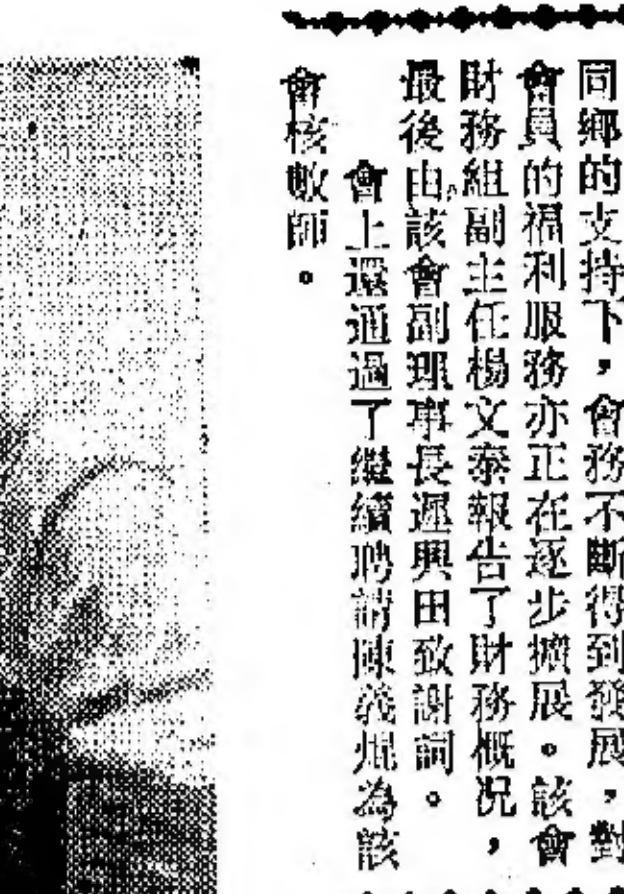 同鄉的支持下，會務不斷得到發展，對
會員的福利服務亦正在逐步擴展。該會
財務組副主任楊文泰報告了財務概況，
最後由該會副理事長遲興田致謝詞。
會上還通過了繼續聘請陳義焜為該
會核數師。